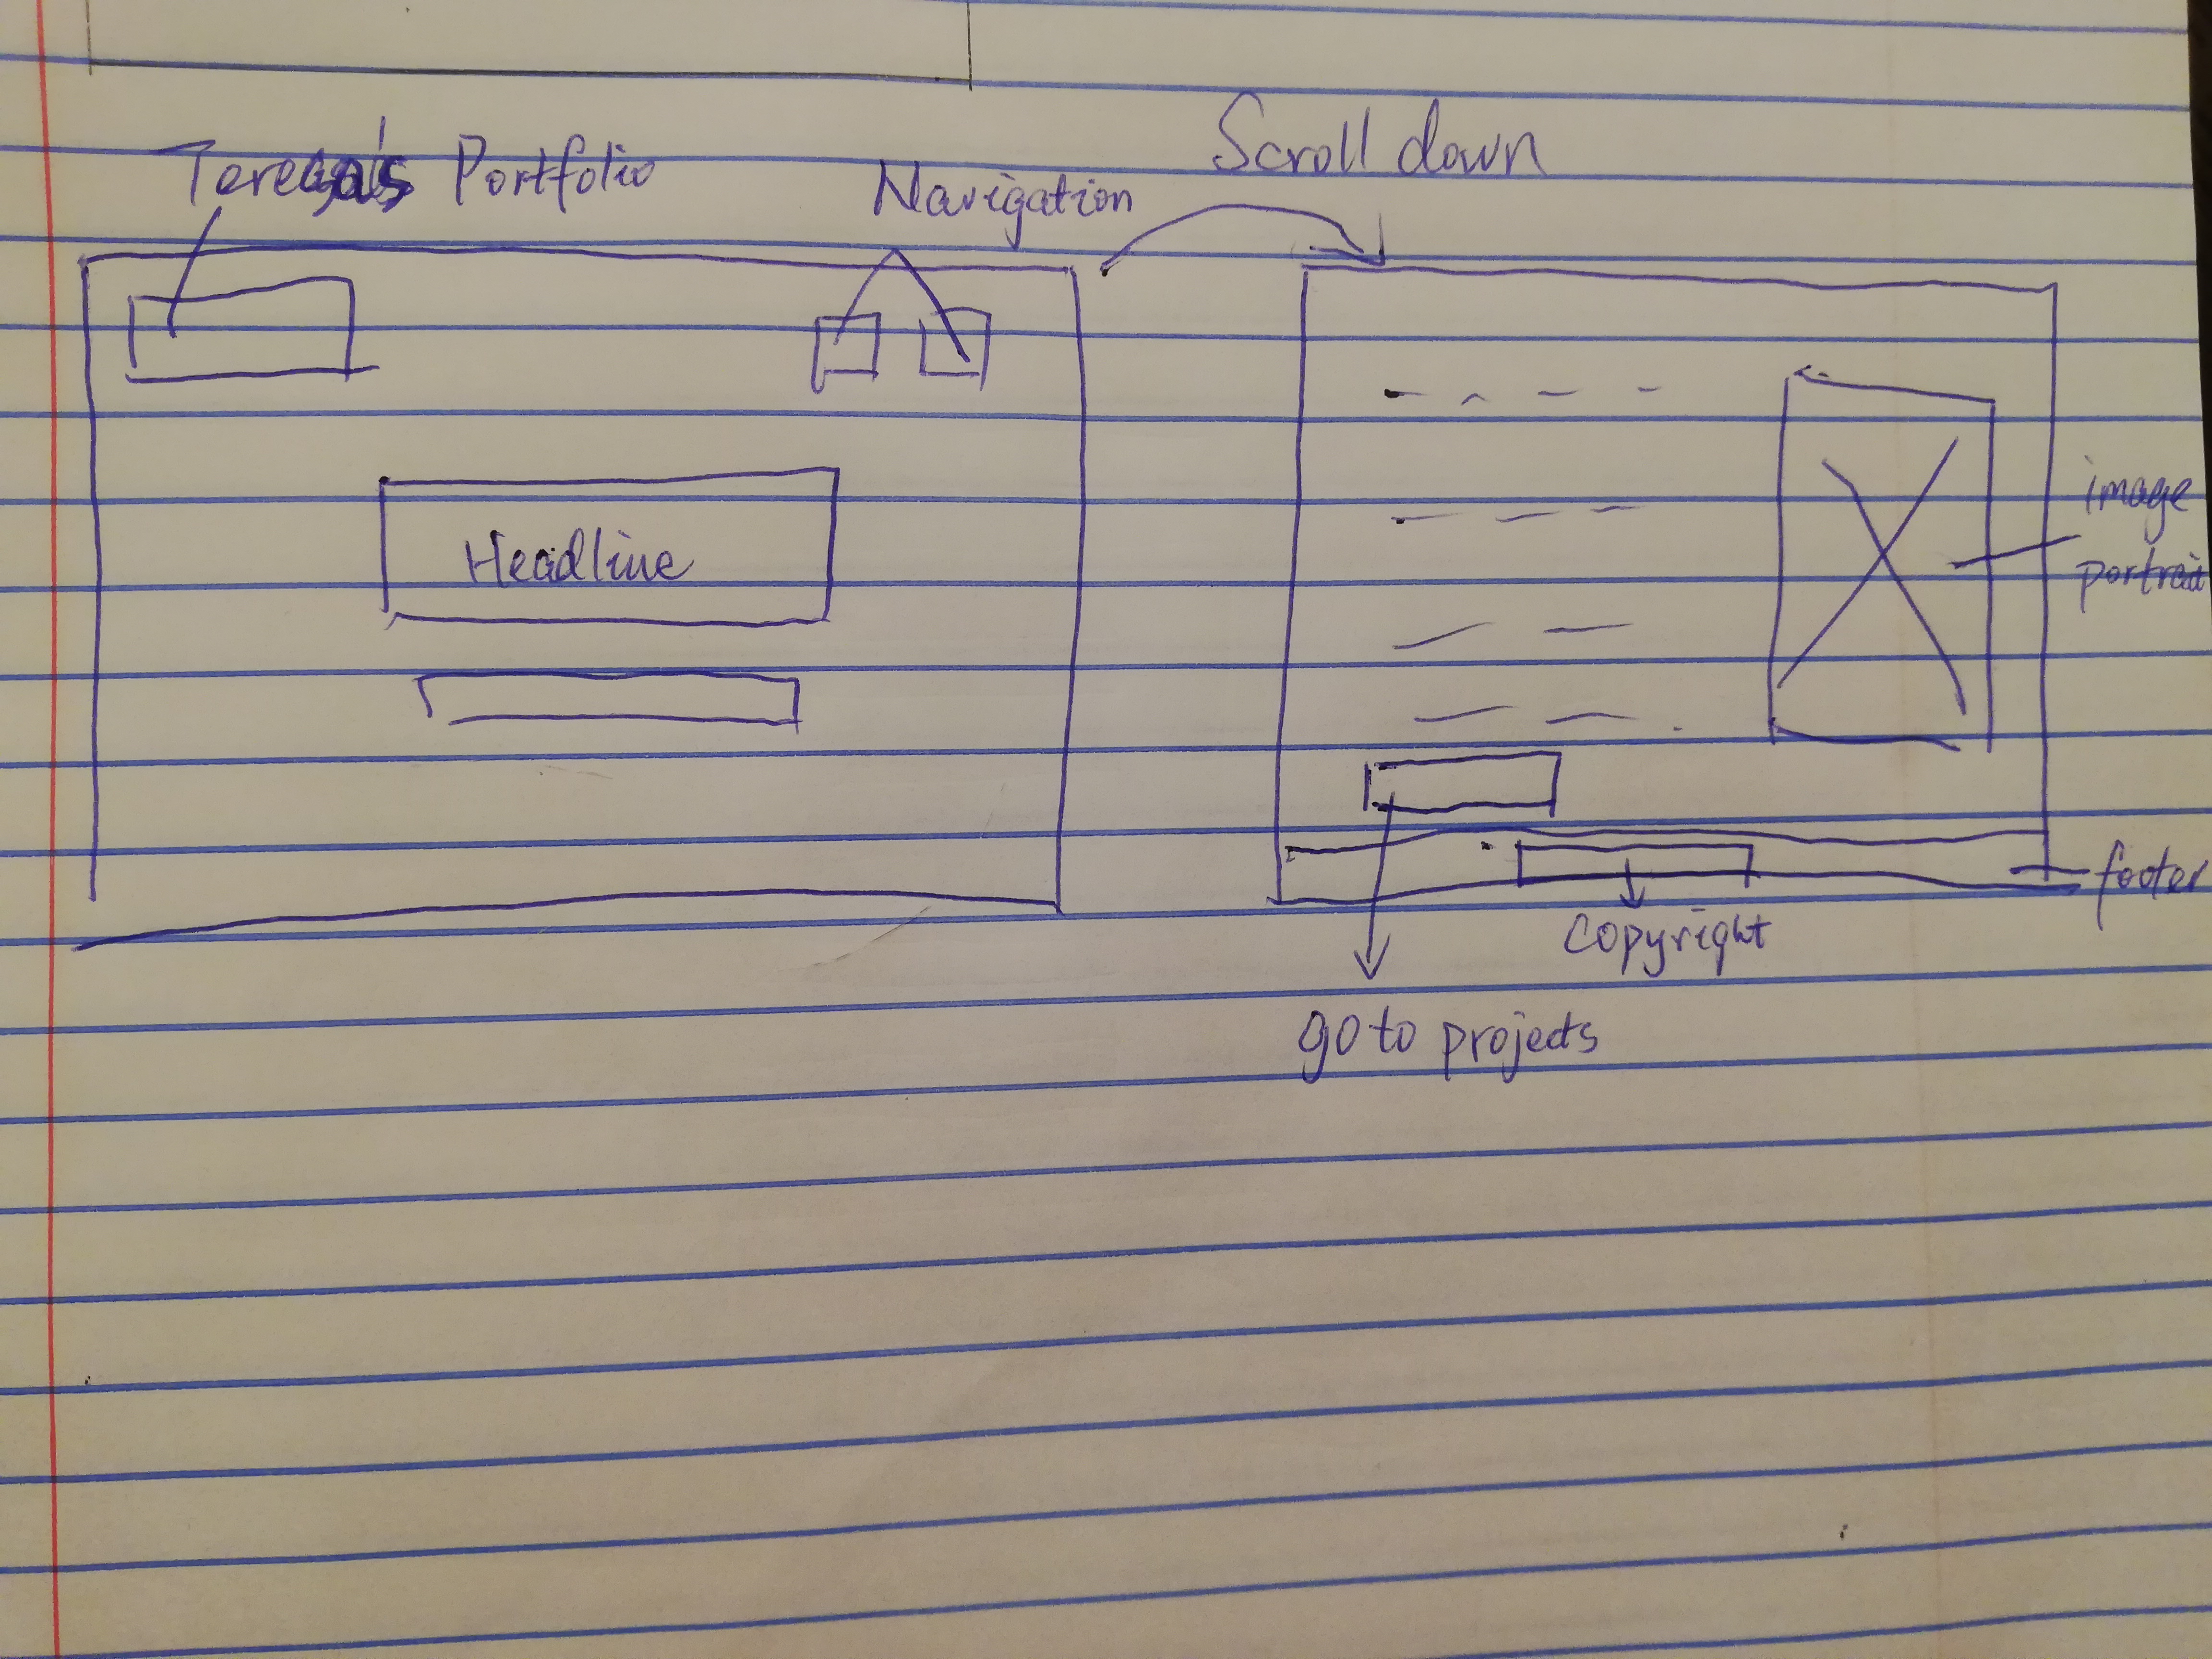 Teresa's Portfolio
Navigation
Scroll down
Headline
image
portrait
footer
copyright
go to projects